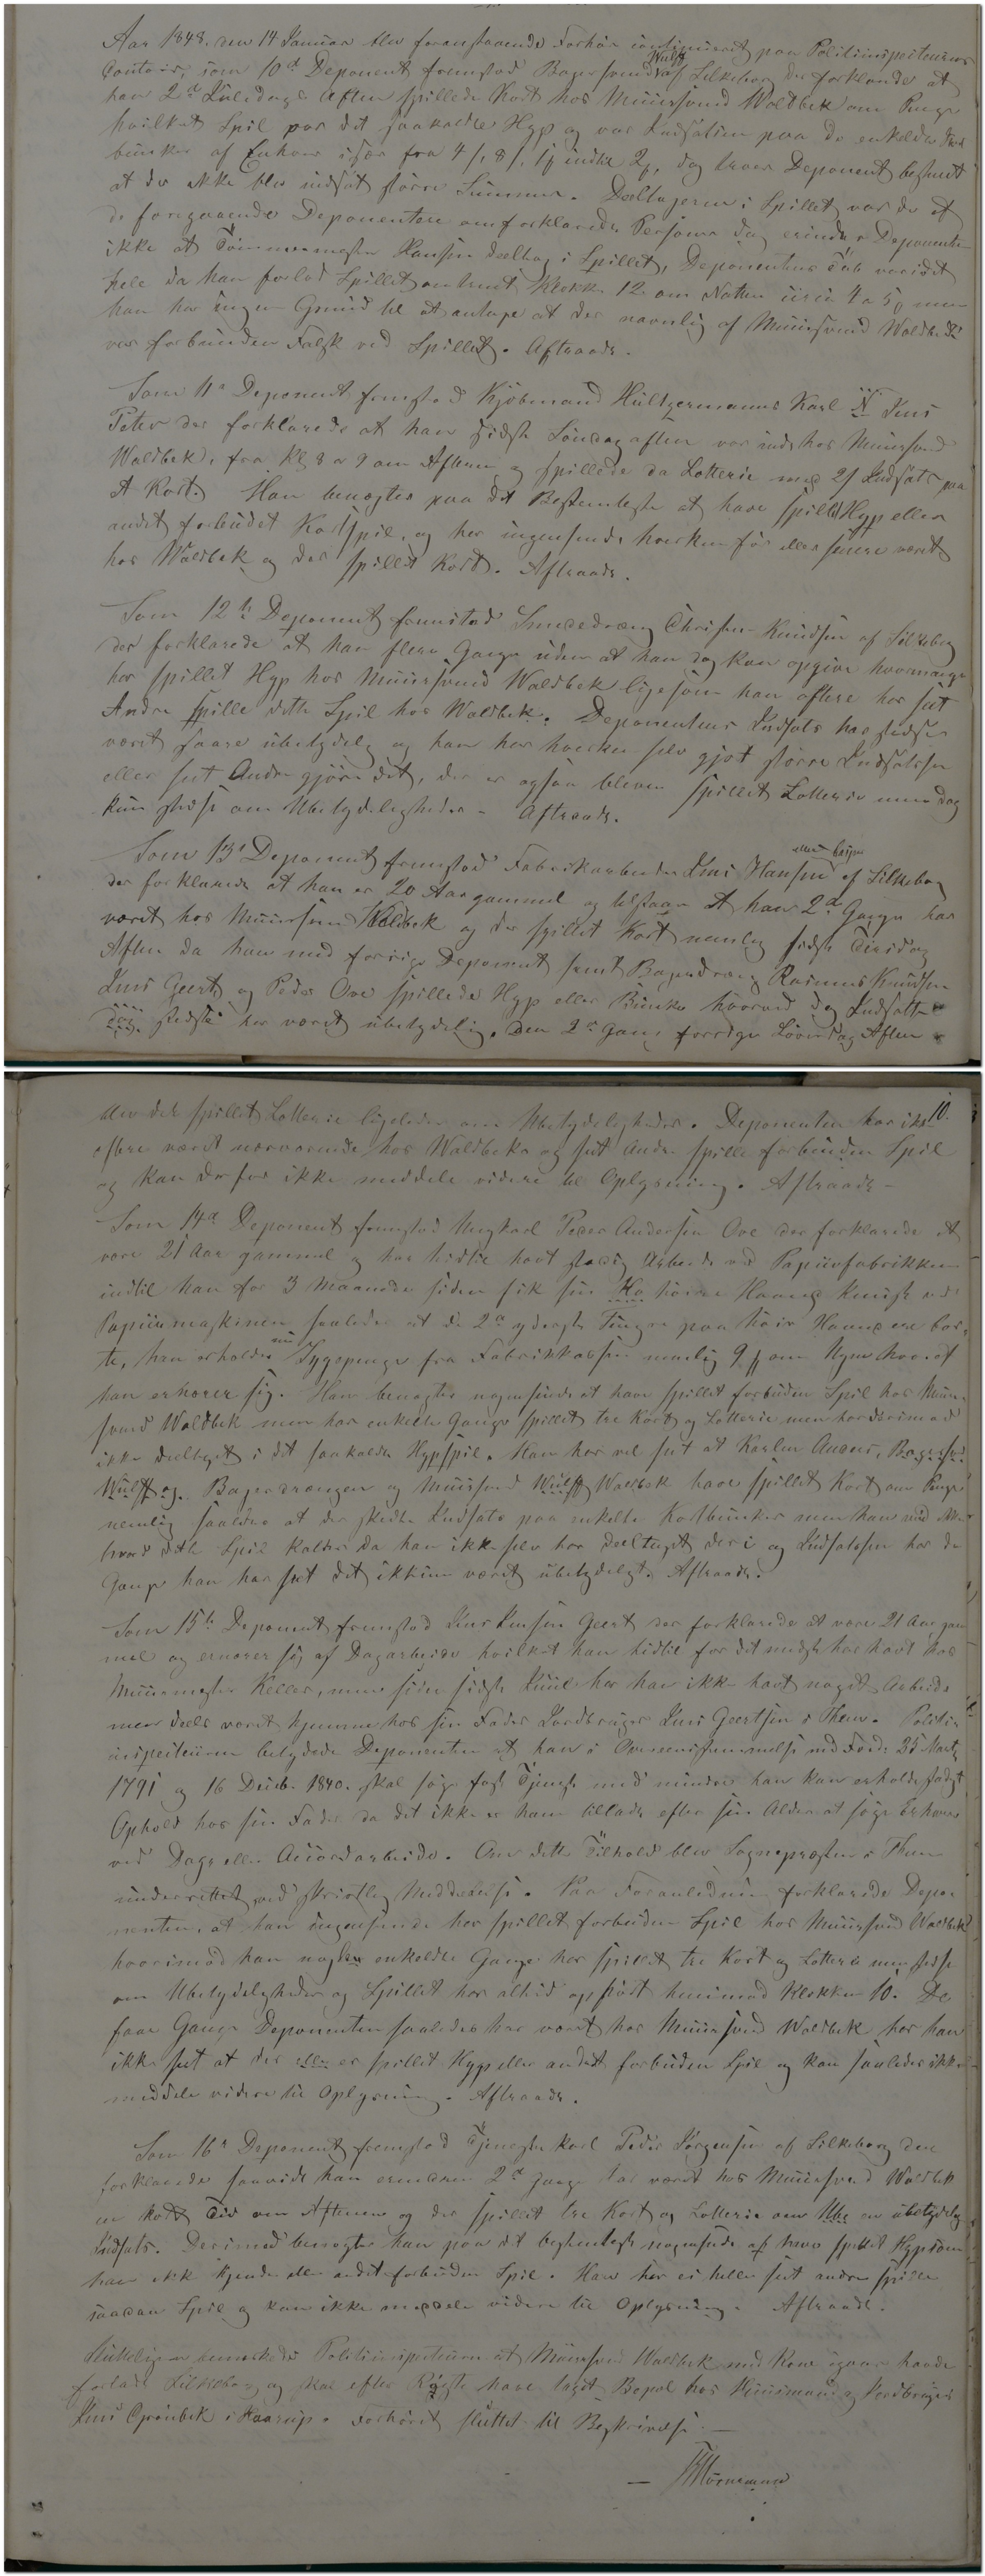 Aar 1848. den 14 Januar blev foranstaaende Forhør continueret paa Politiinspecteurens
Contoir, som 10d Deponent fremstod Bagersvend Wulff af Silkeborg der forklarede at
han 2d Juledags Aften spillede Kort hos Muursvend Waldbek om Penge
hvilket Spil var det saakaldte Hyp og var Indsatsen paa de enkelte Kort
bunker af Enhver især fra 4 /, 8 /, 1 indtil 2, dog troer Deponent bestemt
at der ikke blev indsat større Summer. Deeltagerne i Spillet var de af
de foregaaende Deponentere omforklarede Personer dog erindrer Deponenten
ikke at Tømmermester Hansen deeltog i Spillet, Deponentens Tab var i det
hele da han forlod Spillet omtrent Klokken 12 om Natten circa 4 a 5 men
han har ingen Grund til at antage at der navnlig af Muursvend Waldbek
var forbunden Falsk ved Spillet. Aftraadt.
Som 11te Deponent fremstod Kjøbmand Hültzermanns Karl N Jens
Peter der forklarede at han sidste Søndag aften var inde hos Muursvend
Waldbek, fra Kl 8 a 9 om Aftenen og spillede da Lotterie med 2/ Indsats paa
et Kort. Han benægter paa det Bestemteste at have spillet Hyp eller
andet forbudet Kortspil, og har ingensinde hverken før eller senere været
hos Waldbek og der spillet Kort. Aftraadt.
Som 12te Deponent fremstod Smededreng Christen Knudsen af Silkeborg
der forklarede at han flere Gange uden at han dog kan opgive hvormange
har spillet Hyp hos Muursvend Waldbek ligesom han oftere har seet
Andre spille dette Spil hos Waldbek. Deponentens Indsats har stedse
været saare ubetydelig og han har hverken selv gjort større Indsatser
eller seet Andre gjøre det, der er ogsaa bleven spillet Lotterie men dog
kun stedse om Ubetydeligheder - Aftraadt.
Som 13de Deponent fremstod Fabrikarbeider Jens Hansen af Silkeborg
der forklarede at han er 20 Aar gammel og tilstaar at han 2de Gange har
været hos Muursvend Waldbek og der spillet Kort nemlig sidste Tirsdag
Aften da han med forrige Deponent samt Bagerdreng Rasmus Knudsen
Jens Geert og Peder Ove spillede Hyp eller Bunke hvorved dog Indsatsen
dog stedse har været ubetydelig. Den 2de Gang forrige Løverdag Aften
10.
blev der spillet Lotterie ligeledes om Ubetydeligheder. Deponenten har ikke
oftere været nærværende hos Waldbek og seet Andre spille forbuden Spil
og kan derfor ikke meddele videre til Oplysning. Aftraadt -
Som 14de Deponent fremstod Ungkarl Peder Andersen Ove der forklarede at
være 21 Aar gammel og har hidtil havt stadig Arbeide ved Papiirfabrikken
indtil han for 3 Maaneder siden fik sin Ho høire Haand knust ved
Papiirmaskinen saaledes at de 2de yderste Fingre paa høire Haand ere bor-
te, han erholder nu Sygepenge fra Fabrikkassen nemlig 9 om Ugen hvoraf
han ernærer sig. Han benægter nogensinde at have spillet forbuden Spil hos Muur-
svend Waldbek men har enkelte Gange spillet tre Kort og Lotterie men har derimod
ikke deeltaget i det saakaldte Hypspil. Han har vel seet at Karlen Anders, Bagersvend
Wulff og Bagerdrengen og Muursvend Wulff Waldbek have spillet Kort om Penge
nemlig saaledes at der skedte Indsats paa enkelte Kortbunker men han veed ikke
hvad dette Spil kaldes da han ikke selv har deeltaget deri og Indsatsen har de
Gange han har seet det ikkun været ubetydelig. Aftraadt.
Som 15de Deponent fremstod Jens Jensen Geert der forklarede at være 21 Aar gam-
mel og ernærer sig af Dagarbeide hvilket han hidtil for det meste har havt hos
Muurmester Keller, men siden sidste Juul har han ikke havt noget Arbeide
men deels været hjemme hos sin Fader Jordbruger Jens Geertsen i Them. Politi-
inspecteuren betydede Deponenten at han i Overeensstemmelse med Forordn. 25 Marts
1791 og 16 Decb. 1840. skal søge fast Tjeneste med mindre han kan erholde fast
Ophold hos sin Fader da det ikke er ham tilladt efter sin Alder at søge Erhverv
ved Dag eller Accordarbeide. Om dette Tilhold blev Sognepræsten i Them
underrettet ved skriftlig Meddelelse. Paa Foranledning forklarede Depo-
nenten, at han ingensinde har spillet forbuden Spil hos Muursvend Waldbek
hvorimod han nogle enkelte Gange har spillet tre Kort og Lotterie men stedse
om Ubetydeligheder og Spillet har altid ophørt henimod Klokken 10. De
faae Gange Deponenten saaledes har været hos Muursvend Waldbek har han
ikke seet at der eller er spillet Hyp eller andet forbuden Spil og kan saaledes ikke
meddele videre til Oplysning. Aftraadt.
Som 16de Deponent fremstod Tjenestekarl Peder Jørgensen af Silkeborg der
forklarede saavidt han erindrer 2de Gange har været hos Muursvend Waldbek
en kort Tid om Aftenen og der spillet tre Kort og Lotterie om Ube en ubetydelig
Indsats. Derimod benægter han paa det bestemteste nogensinde at have spillet Hyp som
han ikke kjender eller andet forbuden Spil. Han har ei heller seet andre spille
saadan Spil og kan ikke meddele videre til Oplysning. Aftraadt.
Sluttelig bemærkede Politiinspecteuren at Muursvend Waldbek med Kone igaar havde
forladt Silkeborg og skal efter Rygte have taget Bopæl hos Huusmand og Jordbruger
Jens Grønbek i Haarup. Forhøret sluttet til Beskrivelse. —